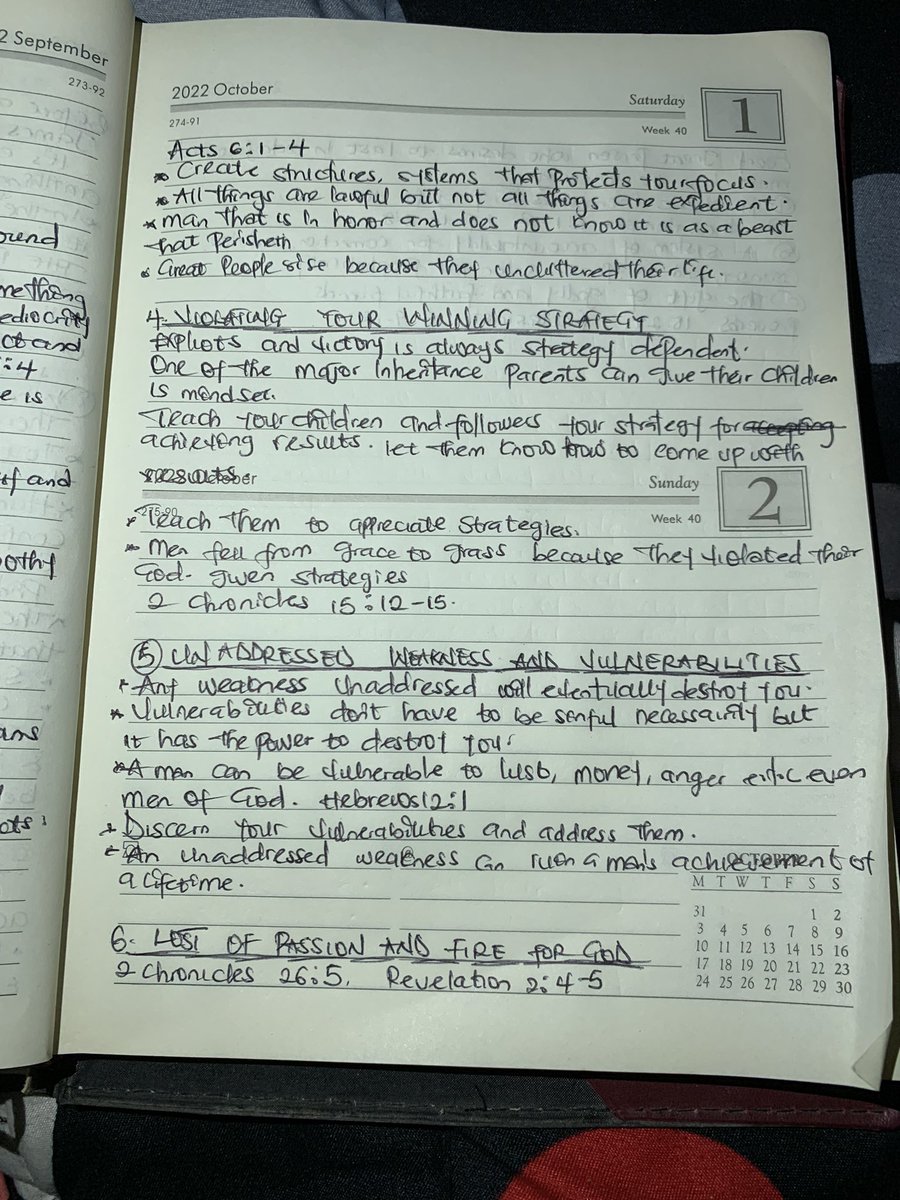 2 September
273-92
ound
mething
ediocrity
ct and
:4
e is
f and
othy
ams
ots:
2022 October
Saturday
1
274-91
Week 40
Acts 6:1-4
* Create structures, systems that Protects your focus.
* All things are lawful but not all things are expedient.
* man that is in honor and does not know it is as a beast
that Perisheth
* Great People rise because they uncluttered their life.
4. VIOLATING YOUR WINNING STRATEGY
Exploits and victory is always strategy dependent.
One of the major Inheritance Parents can give their children
is mindset.
Teach your children and followers your strategy for accepting
achieving results. let them know how to come up with
results
Sunday
2
275-90
Week 40
* Teach them to appreciate strategies.
* Men fell from grace to grass because they violated their
God-given strategies
2 Chronicles 15:12-15.
5 UNADDRESSED WEAKNESS AND VULNERABILITIES
* Any weakness unaddressed will eventually destroy you.
* Vulnerabilities don't have to be sinful necessarily but
it has the power to destroy you.
* A man can be vulnerable to lust, money, anger e.t.c even
men of God. Hebrews 12:1
* Discern your vulnerabilities and address them.
* An unaddressed weakness can ruin a man's achievement of
a lifetime.
OCTOBER
M T W T F S S
31 1 2
3 4 5 6 7 8 9
10 11 12 13 14 15 16
17 18 19 20 21 22 23
24 25 26 27 28 29 30
6. LOST OF PASSION AND FIRE FOR GOD
2 Chronicles 26:5. Revelation 2:4-5